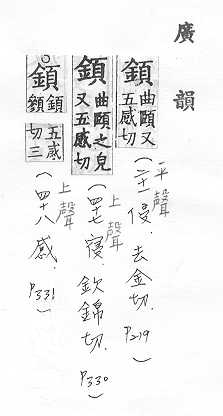 廣韻
顉 曲頤又
五感切
(平聲 二十一侵.去金切.P219)
顉 曲頤之皃
又五感切
(上聲 四十七寑.欽錦切.P330)
顉
五感
切三
(上聲 四十八感.P331)